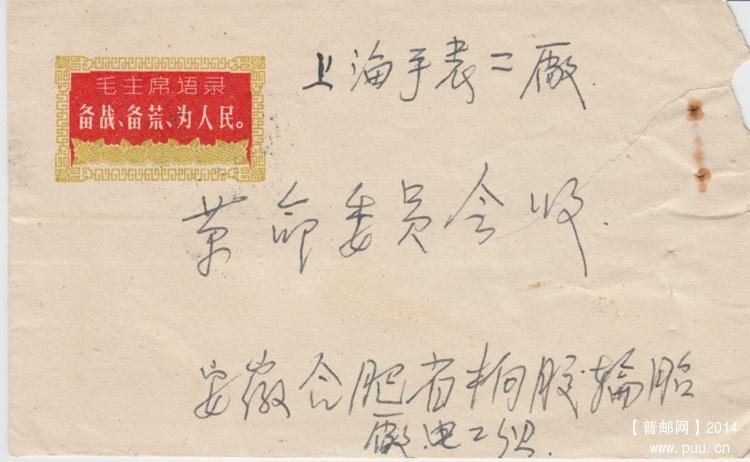 毛主席语录
备战、备荒、为人民。
上海手表二廠
革命委员会收
安徽合肥省橡胶輪胎
廠电工组
【普邮网】2014
www.puu.cn